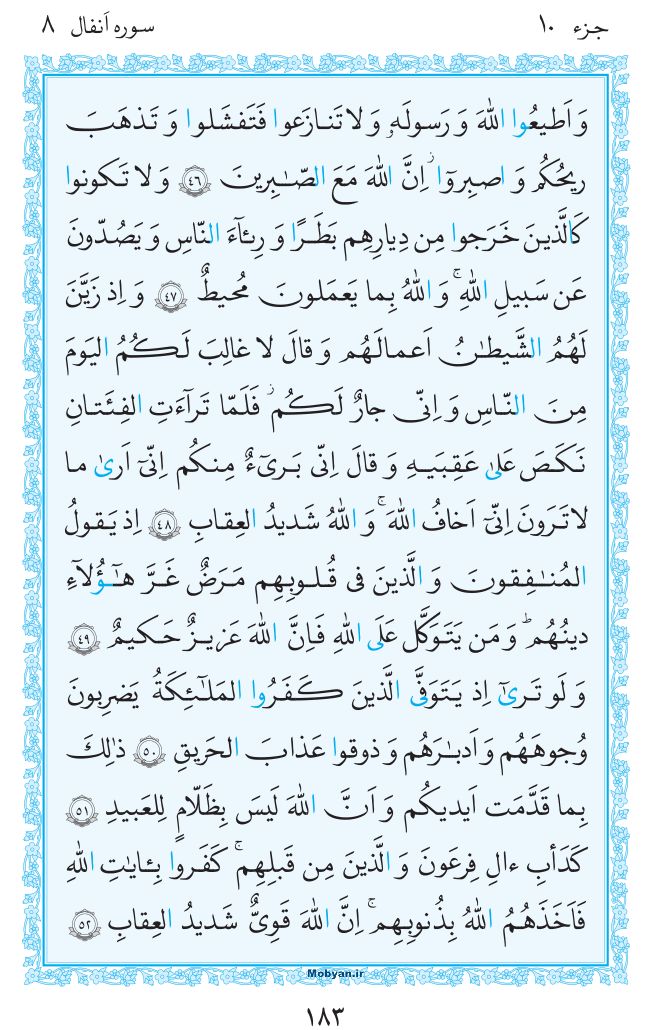 جزء ١٠
سوره اَنفال ٨
وَ اَطیعُوا اللهَ وَ رَسولَهٖ وَ لا تَنازَعوا فَتَفشَلوا وَ تَذهَبَ
ریحُکُم وَ اصبِروٓا ۚ اِنَّ اللهَ مَعَ الصّٰبِرینَ ٤٦ وَ لا تَکونوا
کَالَّذینَ خَرَجوا مِن دِیارِهِم بَطَرًا وَ رِئاءَ النّاسِ وَ یَصُدّونَ
عَن سَبیلِ اللهِ ۚ وَ اللهُ بِما یَعمَلونَ مُحیطٌ ٤٧ وَ اِذ زَیَّنَ
لَهُمُ الشَّیطٰنُ اَعمالَهُم وَ قالَ لا غالِبَ لَکُمُ الیَومَ
مِنَ النّاسِ وَ اِنّی جارٌ لَکُم ۖ فَلَمّا تَراءَتِ الفِئَتانِ
نَکَصَ عَلیٰ عَقِبَیهِ وَ قالَ اِنّی بَریءٌ مِنکُم اِنّیٓ اَریٰ ما
لا تَرَونَ اِنّیٓ اَخافُ اللهَ ۚ وَ اللهُ شَدیدُ العِقابِ ٤٨ اِذ یَقولُ
المُنٰفِقونَ وَ الَّذینَ فی قُلوبِهِم مَرَضٌ غَرَّ هٰٓؤُلاٰءِ
دینُهُم ۗ وَ مَن یَتَوَکَّل عَلَی اللهِ فَاِنَّ اللهَ عَزیزٌ حَکیمٌ ٤٩
وَ لَو تَریٰٓ اِذ یَتَوَفَّی الَّذینَ کَفَرُوا المَلٰٓئِکَةُ یَضرِبونَ
وُجوهَهُم وَ اَدبٰرَهُم وَ ذوقوا عَذابَ الحَریقِ ٥٠ ذٰلِکَ
بِما قَدَّمَت اَیدیکُم وَ اَنَّ اللهَ لَیسَ بِظَلّامٍ لِلعَبیدِ ٥١
کَدَأبِ ءالِ فِرعَونَ وَ الَّذینَ مِن قَبلِهِم ۚ کَفَروا بِئایٰتِ اللهِ
فَاَخَذَهُمُ اللهُ بِذُنوبِهِم ۚ اِنَّ اللهَ قَویٌّ شَدیدُ العِقابِ ٥٢
Mobyan.ir
١٨٣